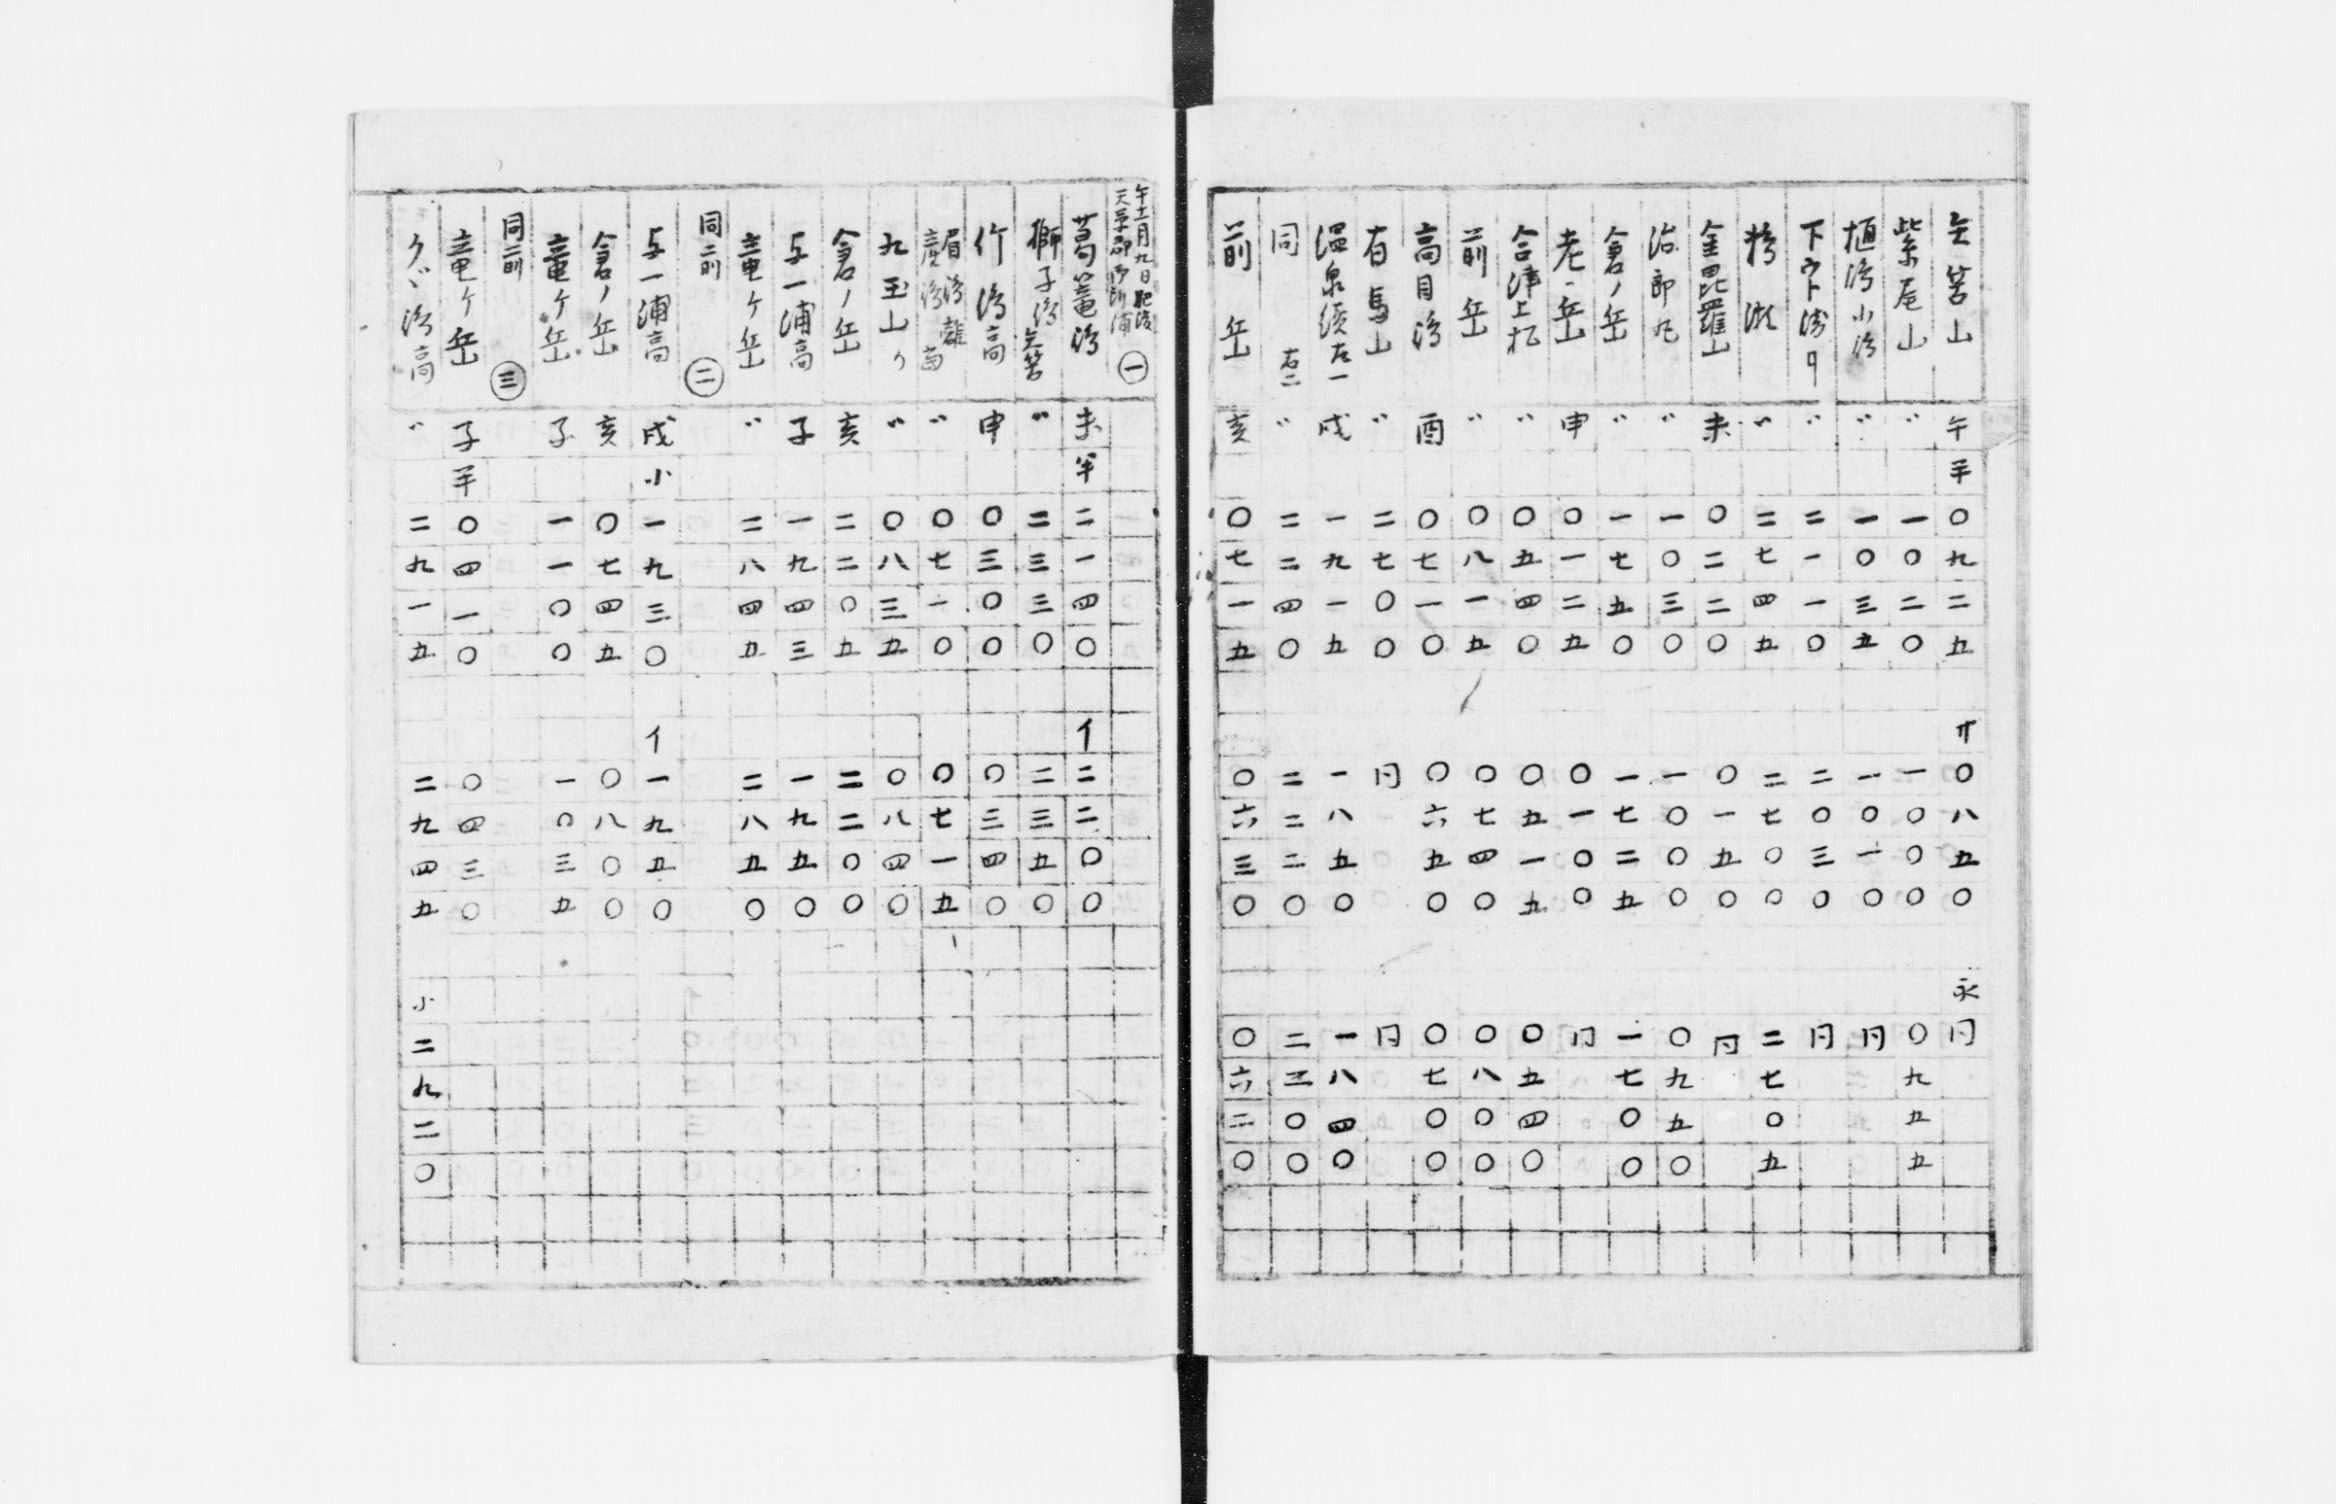 矢筈山 午半 〇九二五 〇八五〇 永 同
紫尾山 〃 一〇二〇 一〇〇〇 〇九五五
樋嶋小嶋 〃 一〇三五 一〇一〇 同
下ウト 〃 二一一〇 二〇三〇 同
瀬 〃 二七四五 二七〇〇 二七〇五
金毘羅山 未 〇二二〇 〇一五〇 同
治郎丸 〃 一〇三〇 一〇〇〇 〇九五〇
倉ノ岳 〃 一七五〇 一七二五 一七〇〇
老ノ岳 申 〇一二五 〇一〇〇 同
合津上 〃 〇五四〇 〇五一五 〇五四〇
前岳 〃 〇八一五 〇七四〇 〇八〇〇
高目嶋 酉 〇七一〇 〇六五〇 〇七〇〇
有馬山 〃 二七〇〇 同 同
温泉続左一 戌 一九一五 一八五〇 一八四〇
同 右二 〃 二二四〇 二二二〇 二三〇〇
前岳 亥 〇七一五 〇六三〇 〇六二〇
午十一月九日肥後
天草郡御所浦 一
葛籠嶋 未半 二一四〇 イ 二二〇〇
獅子嶋矢筈 〃 二三三〇 二三五〇
竹嶋高 申 〇三〇〇 〇三四〇
眉嶋離
嶋 〃 〇七一〇 〇七一五
九玉山 〃 〇八三五 〇八四〇
倉ノ岳 亥 二二〇五 二二〇〇
与一浦高 子 一九四三 一九五〇
竜ケ岳 〃 二八四五 二八五〇
同前 二
与一浦高 戌小 一九三〇 イ 一九五〇
倉ノ岳 亥 〇七四五 〇八〇〇
竜ケ岳 子 一一〇〇 一〇三五
同前 三
竜ケ岳 子半 〇四一〇 〇四三〇
クゞ嶋高 〃 二九一五 二九四五 小 二九二〇